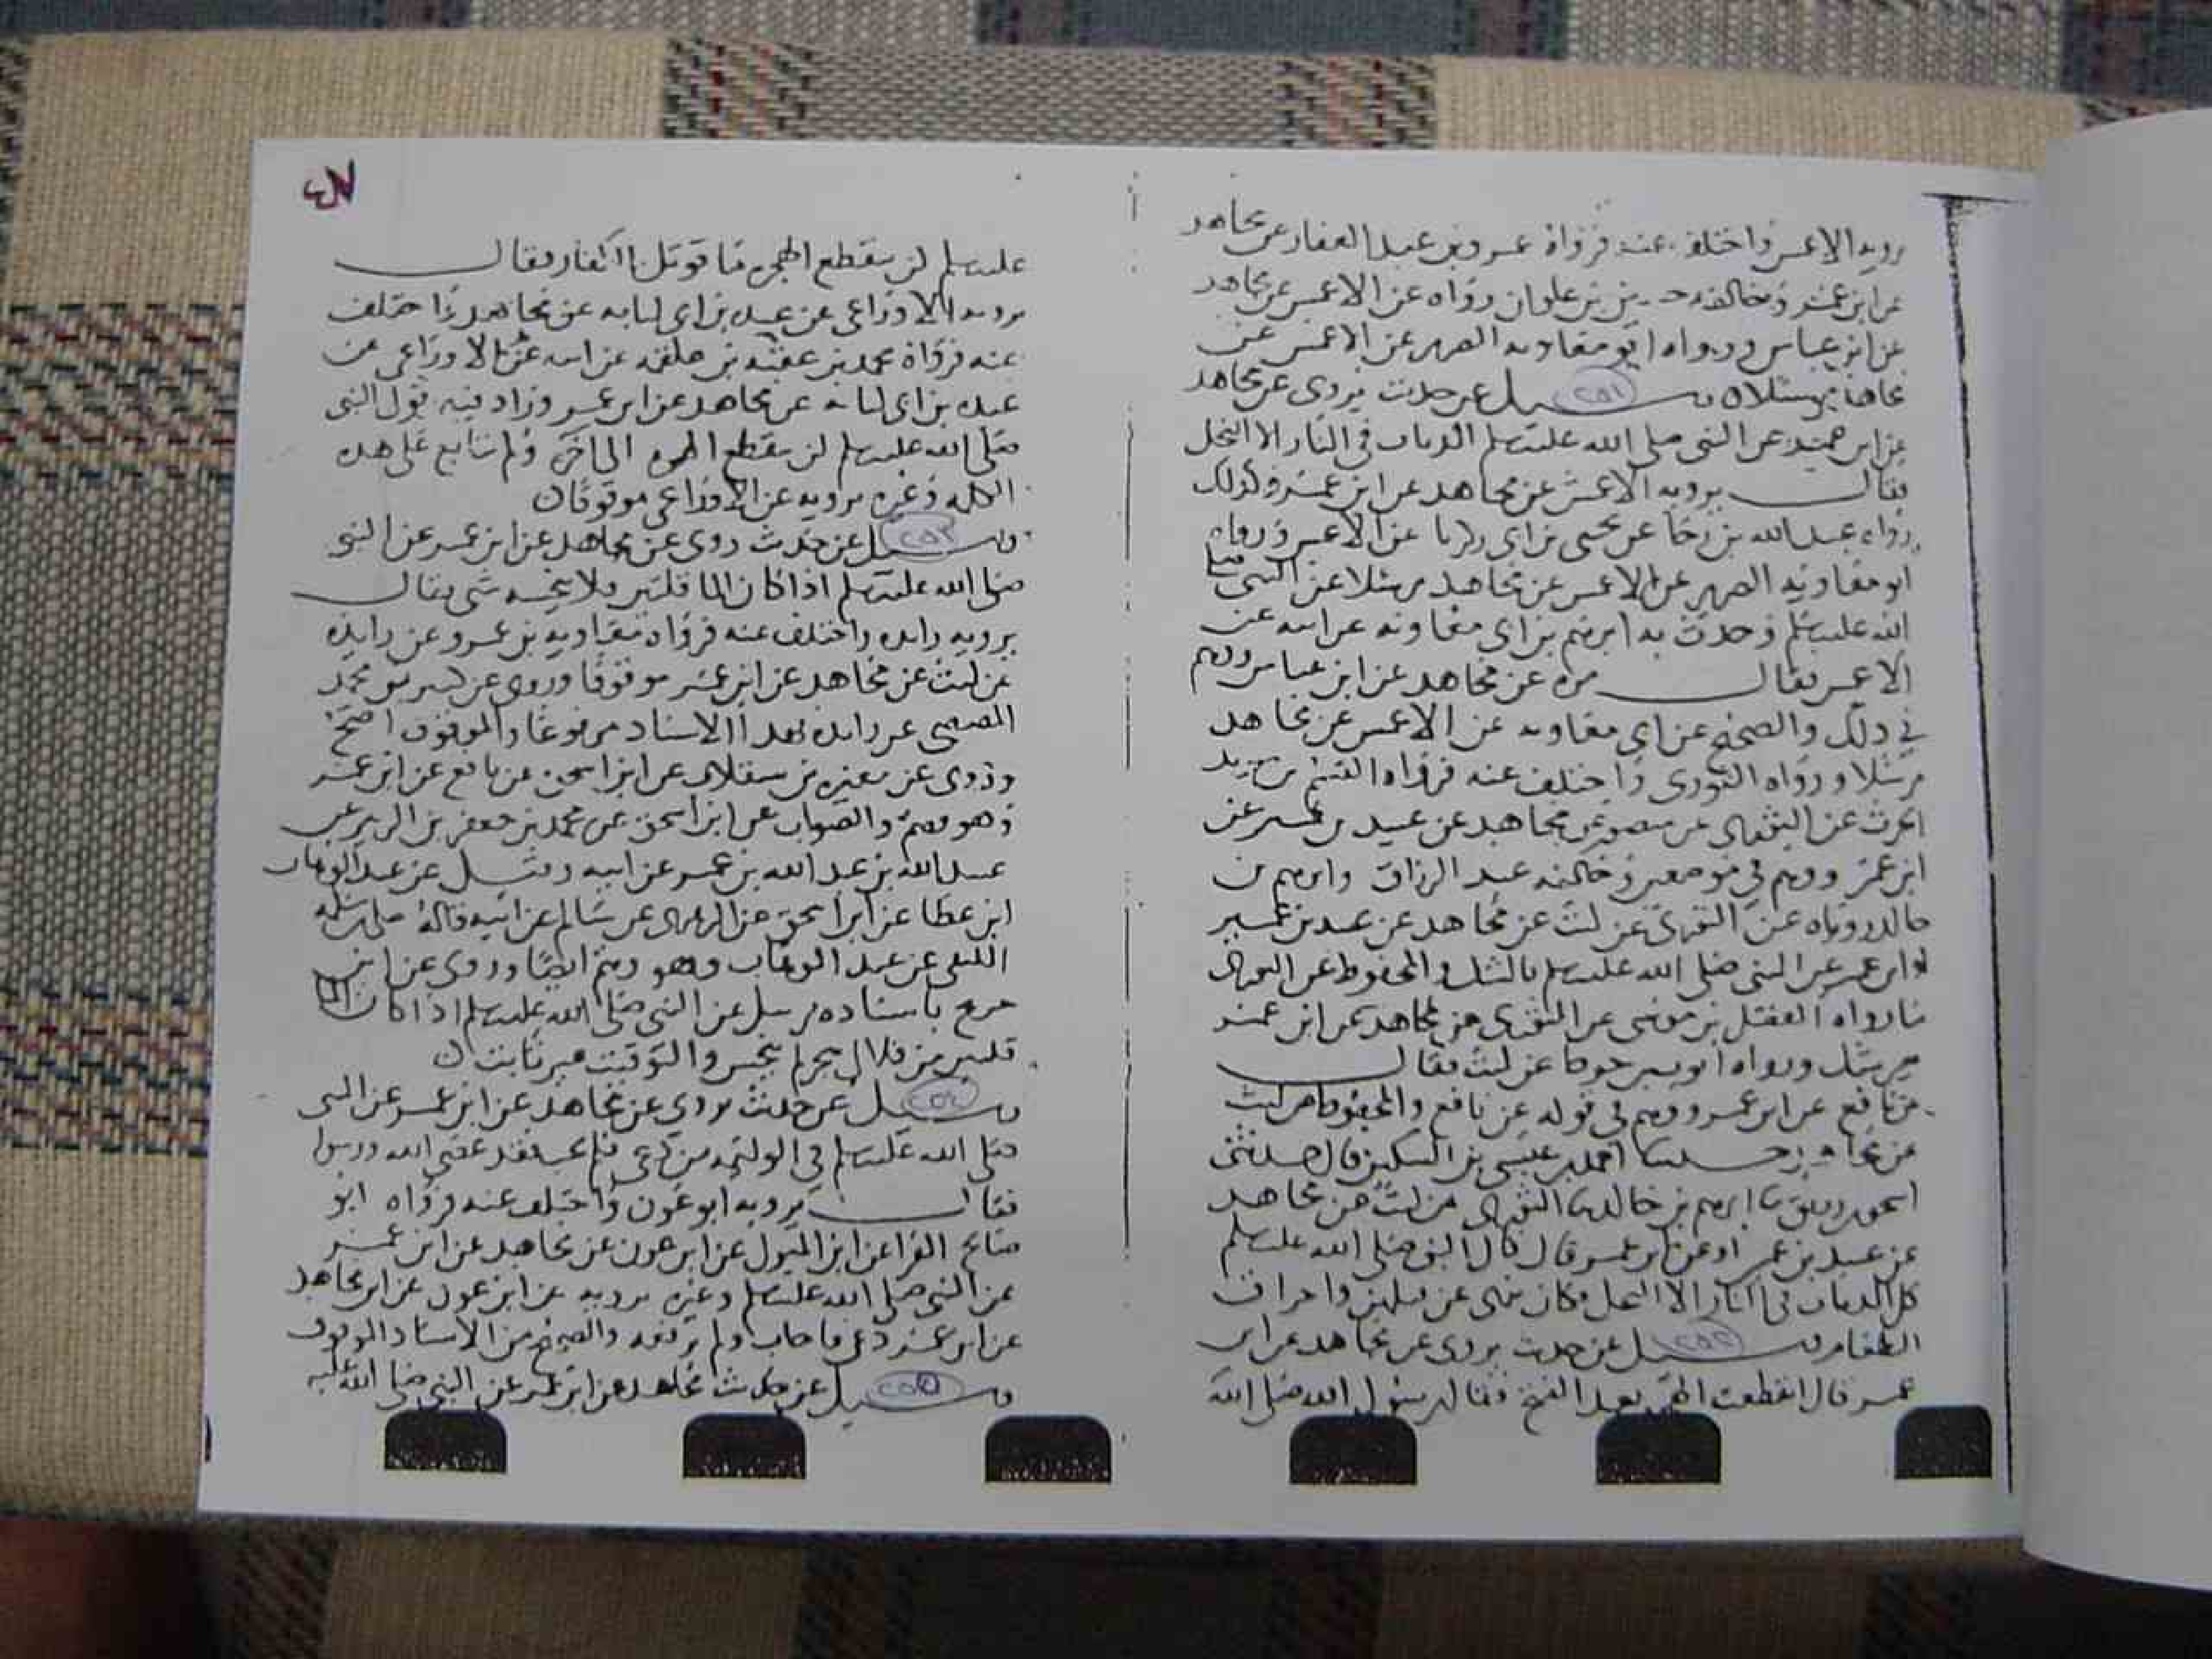 يرويه الاعمش واختلف عنه فرواه عمرو بن عبد الغفار عن مجاهد
عن ابن عمر وخالفه بن علوان رواه عن الاعمش عن مجاهد
عن ابن عباس ورواه ابو معاويه الضرير عن الاعمش عن
مجاهد مرسلا وسئل ٢٥١ عن حديث يروى عن مجاهد
عن ابن عمر عن النبي صلى الله عليه وسلم الذباب في النار الا النحل
فقال يرويه الاعمش عن مجاهد عن ابن عمر وكذلك
رواه عبد الله بن رجا عن يحيى بن ابي زكريا عن الاعمش ورواه
ابو معاويه الضرير عن الاعمش عن مجاهد مرسلا عن النبي صلى
الله عليه وسلم وحدث به ابرهيم بن ابي معاويه عن ابيه عن
الاعمش فقال مره عن مجاهد عن ابن عباس ووهم
في ذلك والصحيح عن ابي معاويه عن الاعمش عن مجاهد
مرسلا ورواه الثوري واختلف عنه فرواه القسم بن يزيد
الجرمي عن الثوري عن منصور عن مجاهد عن عبيد بن عمير عن
ابن عمر ووهم في موضعين وخالفه عبد الرزاق وابرهيم بن
خالد روياه عن الثوري عن ليث عن مجاهد عن عبيد بن عمير
او ابن عمر عن النبي صلى الله عليه وسلم بالشك والمحفوظ عن الثوري
ما رواه الفضل بن موسى عن الثوري عن مجاهد عن ابن عمر
ورواه ابو عن ليث فقال
عن نافع عن ابن عمر ووهم في قوله عن نافع والمحفوظ عن ليث
عن مجاهد حدثنا احمد بن عيسى بن السكين قال حدثني
اسحق بن ابرهيم بن خالد الثوري عن ليث عن مجاهد
عن عبيد بن عمير او عن ابن عمر قال قال النبي صلى الله عليه وسلم
كل الذباب في النار الا النحل وكان ينهى عن قتلهن واحراق
الطعام وسئل ٢٥٢ عن حديث يروى عن مجاهد عن ابن
عمر قال انقطعت الهجره بعد الفتح فقال رسول الله صلى الله
عليه وسلم لن تنقطع الهجره ما قوتل الكفار فقال
يرويه الاوزاعي عن عبده بن ابي لبابه عن مجاهد واختلف
عنه فرواه محمد بن عقبه بن علقمه عن ابيه عن الاوزاعي عن
عبده بن ابي لبابه عن مجاهد عن ابن عمر وزاد فيه قول النبي
صلى الله عليه وسلم لن تنقطع الهجره الى اخره ولم يتابع على هذه
الكلمه وغيره يرويه عن الاوزاعي موقوفا
وسئل ٢٥٣ عن حديث روي عن مجاهد عن ابن عمر عن النبي
صلى الله عليه وسلم اذا كان الما قلتين فلا ينجسه شي فقال
يرويه زايده واختلف عنه فرواه معاويه بن عمرو عن زايده
عن ليث عن مجاهد عن ابن عمر موقوفا وروي عن كثير بن محمد
المصيصي عن زايده بهذا الاسناد مرفوعا والموقوف اصح
وروي عن مغيره بن سقلاب عن ابن اسحق عن نافع عن ابن عمر
وهو وهم والصواب عن ابن اسحق عن محمد بن جعفر بن الزبير عن
عبيد الله بن عبد الله بن عمر عن ابيه وقيل عن عبد الوهاب
ابن عطا عن ابن اسحق عن الزهري عن سالم عن ابيه قاله علي بن سلمه
اللبقي عن عبد الوهاب وهو وهم ايضا وروي عن ابن
جريج باسناد مرسل عن النبي صلى الله عليه وسلم اذا كان الما
قلتين من قلال هجر لم ينجس والتوقيت غير ثابت
وسئل ٢٥٤ عن حديث يروى عن مجاهد عن ابن عمر عن النبي
صلى الله عليه وسلم في الوليمه من دعي فلم يجب فقد عصى الله ورسوله
فقال يرويه ابو عون واختلف عنه فرواه ابو
صالح الفرا عن ابن المبارك عن ابن عون عن مجاهد عن ابن عمر
عن النبي صلى الله عليه وسلم وغيره يرويه عن ابن عون عن ابن مجاهد
عن ابن عمر دعي فاجاب ولم يرفعه والصحيح من الاسناد الموقوف
وسئل ٢٥٥ عن حديث مجاهد عن ابن عمر عن النبي صلى الله عليه